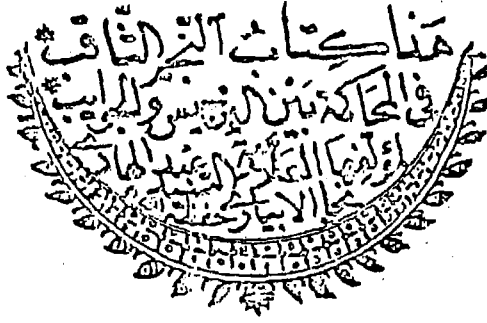 هذا كتاب النجم الثاقب
في المحاكمة بين البرجيس والجوائب
لمؤلفها العلامة السيد عبد الهادي
نجا الابياري